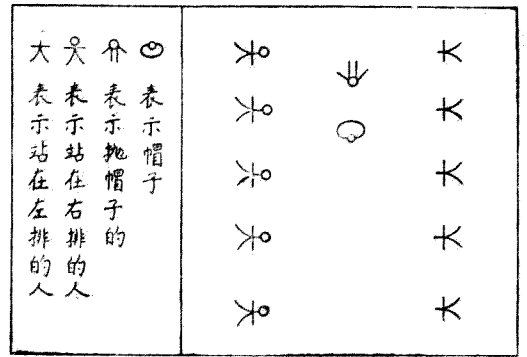 表示帽子
表示抛帽子的
表示站在右排的人
表示站在左排的人